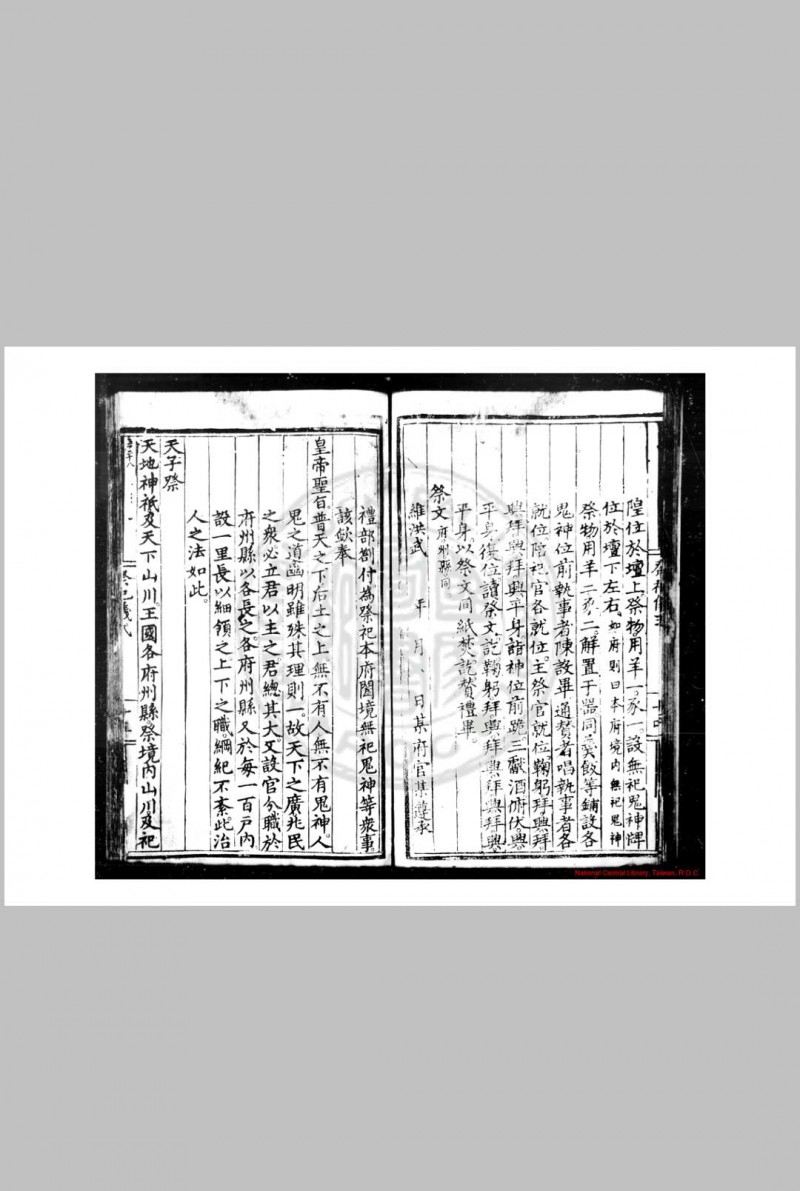 隍位於壇上祭物用羊一豕一設無祀鬼神牌
位於壇下左右如府則曰本府境内無祀鬼神
祭物用羊二豕二解置于器同羹飯等鋪設各
鬼神位前執事者陳設畢通贊者唱執事者各
就位陪祀官各就位主祭官就位鞠躬拜興拜
興拜興拜興平身詣神位前跪三獻酒俯伏興
平身復位讀祭文訖鞠躬拜興拜興拜興拜興
平身以祭文同紙焚訖贊禮畢
祭文府州縣同
維洪武 年 月 日某府官某遵承
禮部劄付為祭祀本府闔境無祀鬼神等衆事
該欽奉
皇帝聖旨普天之下后土之上無不有人無不有鬼神。人
鬼之道幽明雖殊其理則一。故天下之廣兆民
之衆必立君以主之君總其大又設官分職於
府州縣以各長之。各府州縣又於每一百戸内
設一里長以細領之。上下之職綱紀不紊此治
人之法如此。
天子祭
天地神祇及天下山川。王國各府州縣祭境内山川及祀
祭祀儀式
National Central Library, Taiwan, R.O.C